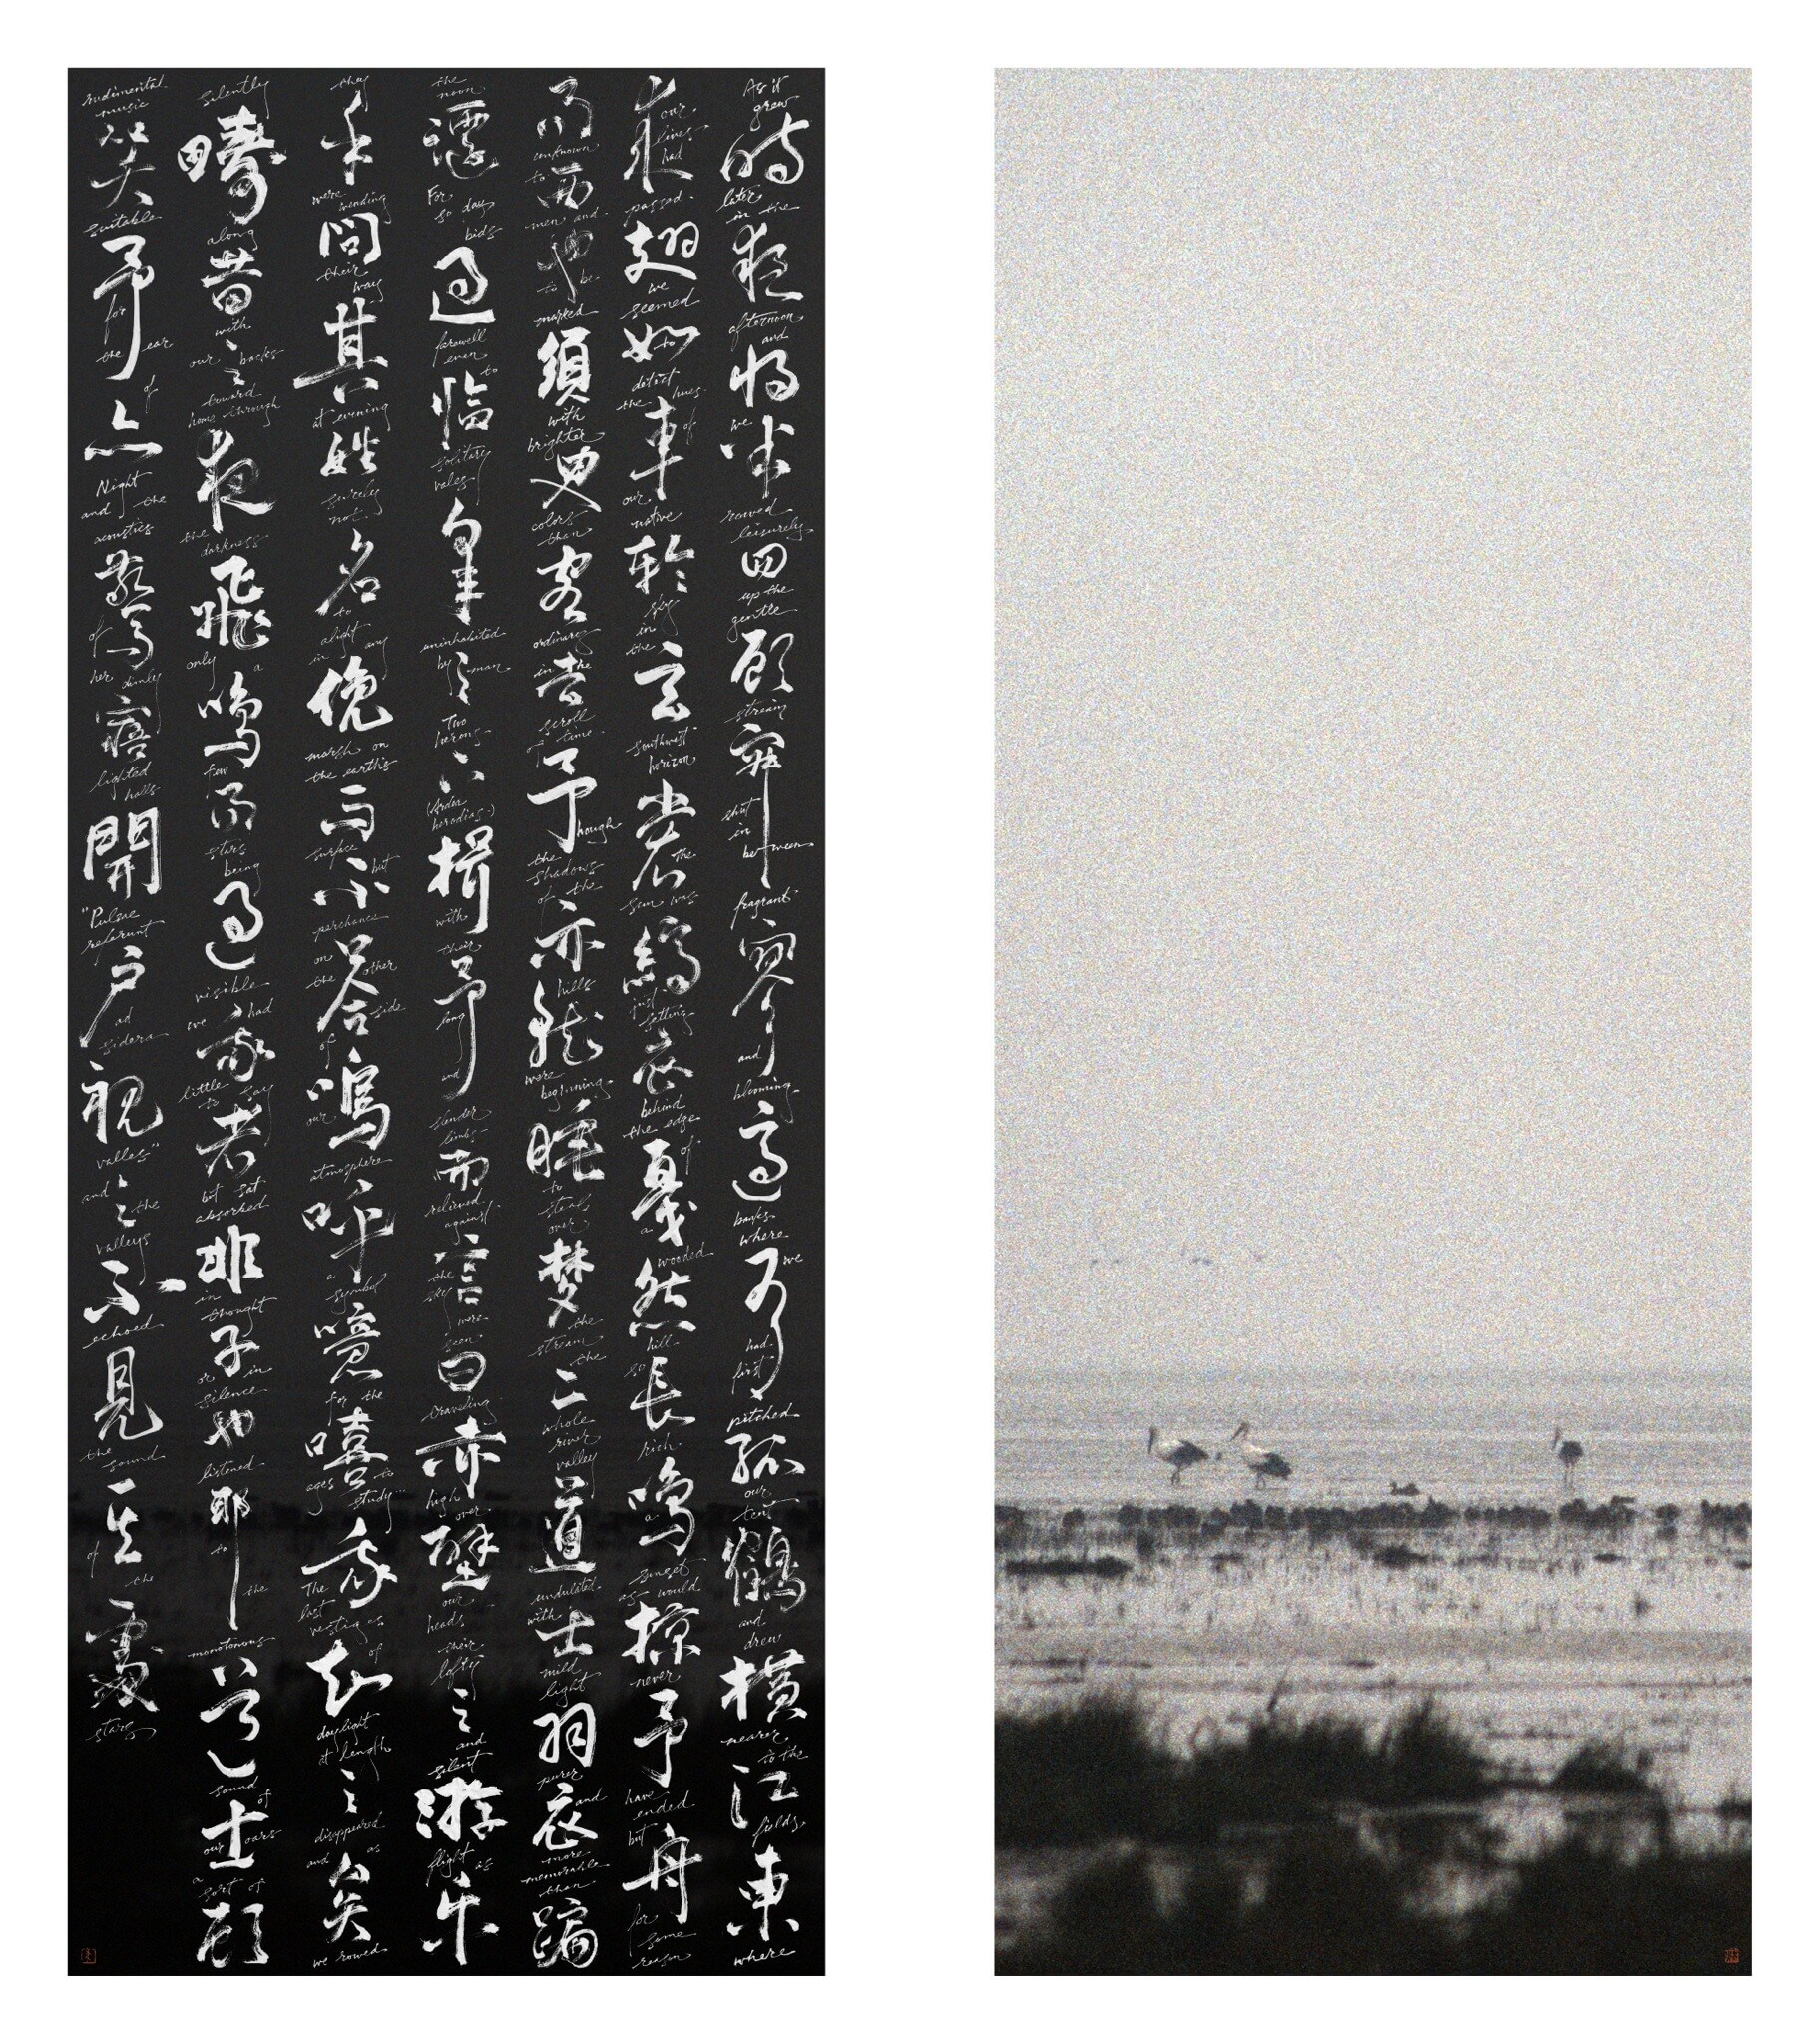 As it grew 時 later in the 夜 afternoon and 將 we 半 rowed leisurely 四 up the gentle 顧 stream 寂 shut in between fragrant 寥 and blooming 適 banks where 有 we had first pitched 孤 our tent 鶴 and drew 橫 nearer to the 江 fields 東 where
來 our lives had passed. 翅 we seemed 如 to detect the hues 車 of our native 輪 sky in the 玄 southwest horizon 裳 the sun was 縞 just setting 衣 behind the edge 戛 of a wooded 然 hill so 長 rich 鳴 a sunset as would 掠 never 予 have ended but 舟 for some reason
而 unknown to 西 men and 也 to be marked 須 with brighter 臾 colors than 客 ordinary in the 去 scroll of time. 予 Though the shadows of the 亦 hills 就 were beginning 睡 to steal over 夢 the stream the 二 whole river valley 道 undulated with 士 mild light 羽 purer and 衣 more memorable than 蹁
the noon. 僊 For so day bids 過 farewell even to 臨 solitary vales 皋 uninhabited by man. 之 Two herons 下 (Ardea herodias) 揖 with their 予 long and slender limbs 而 relieved against 言 the sky were seen 曰 traveling 赤 high over 壁 our heads their lofty 之 and silent 游 flight as 樂
they 乎 were wending 問 their way 其 at evening 姓 surely not 名 to alight in any 俛 marsh on the earth's 而 surface but 不 perchance on the other 答 side of 嗚 our atmosphere 呼 a symbol 噫 for the 嘻 ages to study 我 The last vestiges of 知 daylight at length 之 disappeared and as 矣 we rowed
silently 疇 along 昔 with our backs 之 toward home through 夜 the darkness 飛 only a 鳴 few 而 stars being 過 visible 我 we had little to say 者 but sat absorbed 非 in thought 子 or in silence 也 listened 耶 to the monotonous 道 sound of our oars 士 a sort of 顧
rudimental music 笑 suitable 予 for the ear of 亦 Night and the acoustics 驚 of her dimly 寤 lighted halls 開 "Pulsae referunt 戶 ad sidera 視 valles" and 之 the valleys 不 echoed 見 the sound 其 of the 處 stars